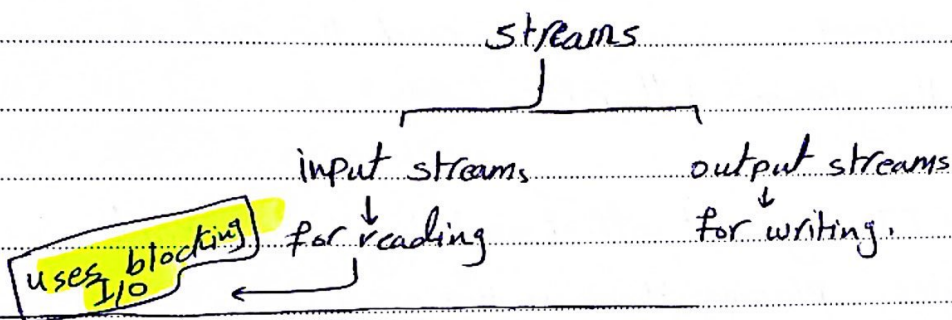 streams
input streams
output streams
for reading
for writing.
uses blocking
I/O